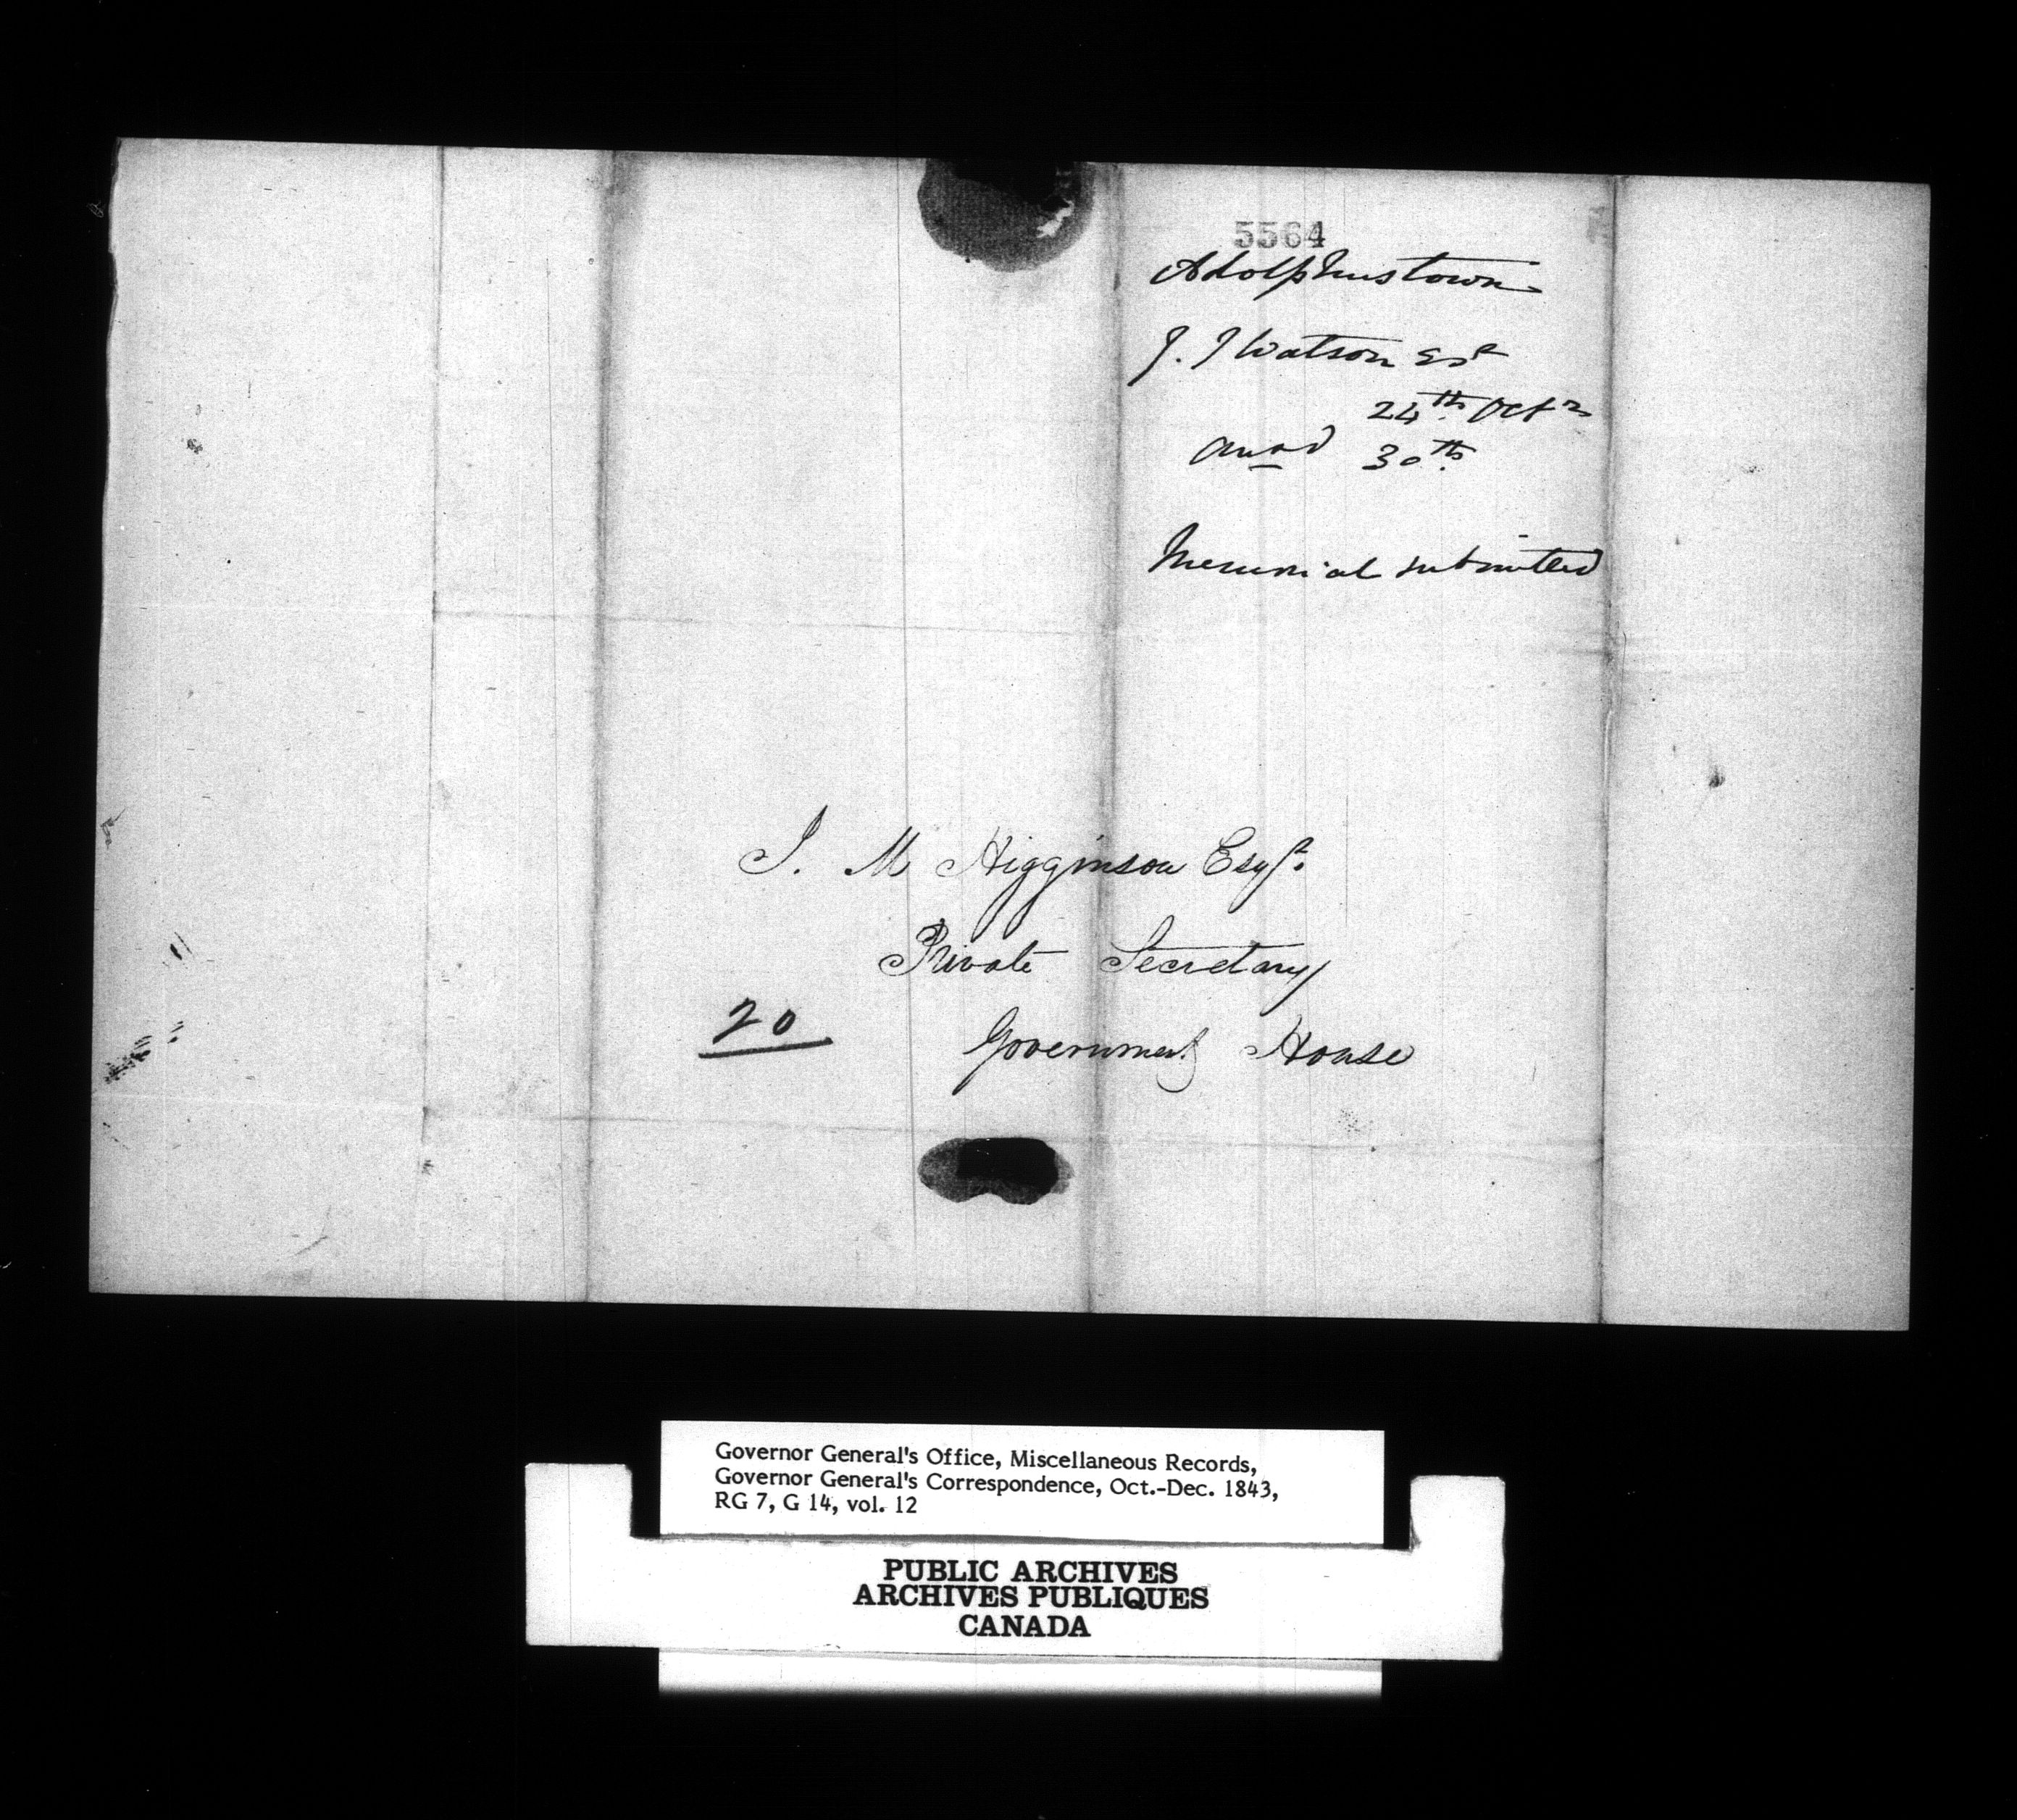 5564
Adolphustown
J. J Watson Esr
24th Octr
Answd 30th
Memorial submitted
J. M Higginson Esqr.
Private Secretary
20
Government House
Governor General's Office, Miscellaneous Records,
Governor General's Correspondence, Oct.-Dec. 1843,
RG 7, G 14, vol. 12
PUBLIC ARCHIVES
ARCHIVES PUBLIQUES
CANADA